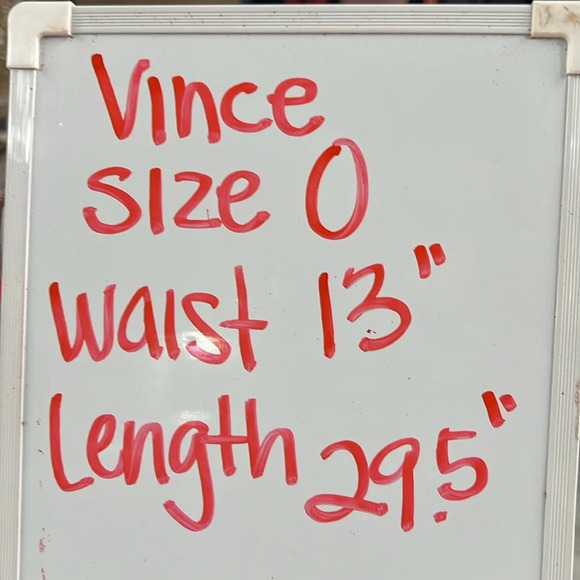 Vince
Size 0
Waist 13"
Length 29.5"